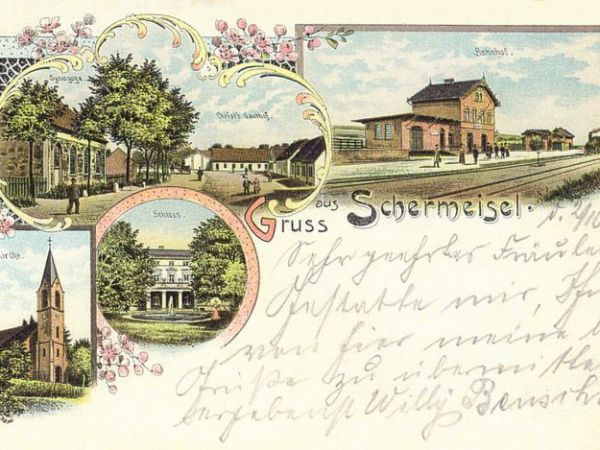 Synagoge
Christ's Gasthof
Bahnhof.
Gruss aus Schermeisel.
Schloss
Kirche.
Sehr geehrtes Fräule
Gestatte mir, Ih
von hier meine b
Grüße zu übermitte
ergebenst Willy